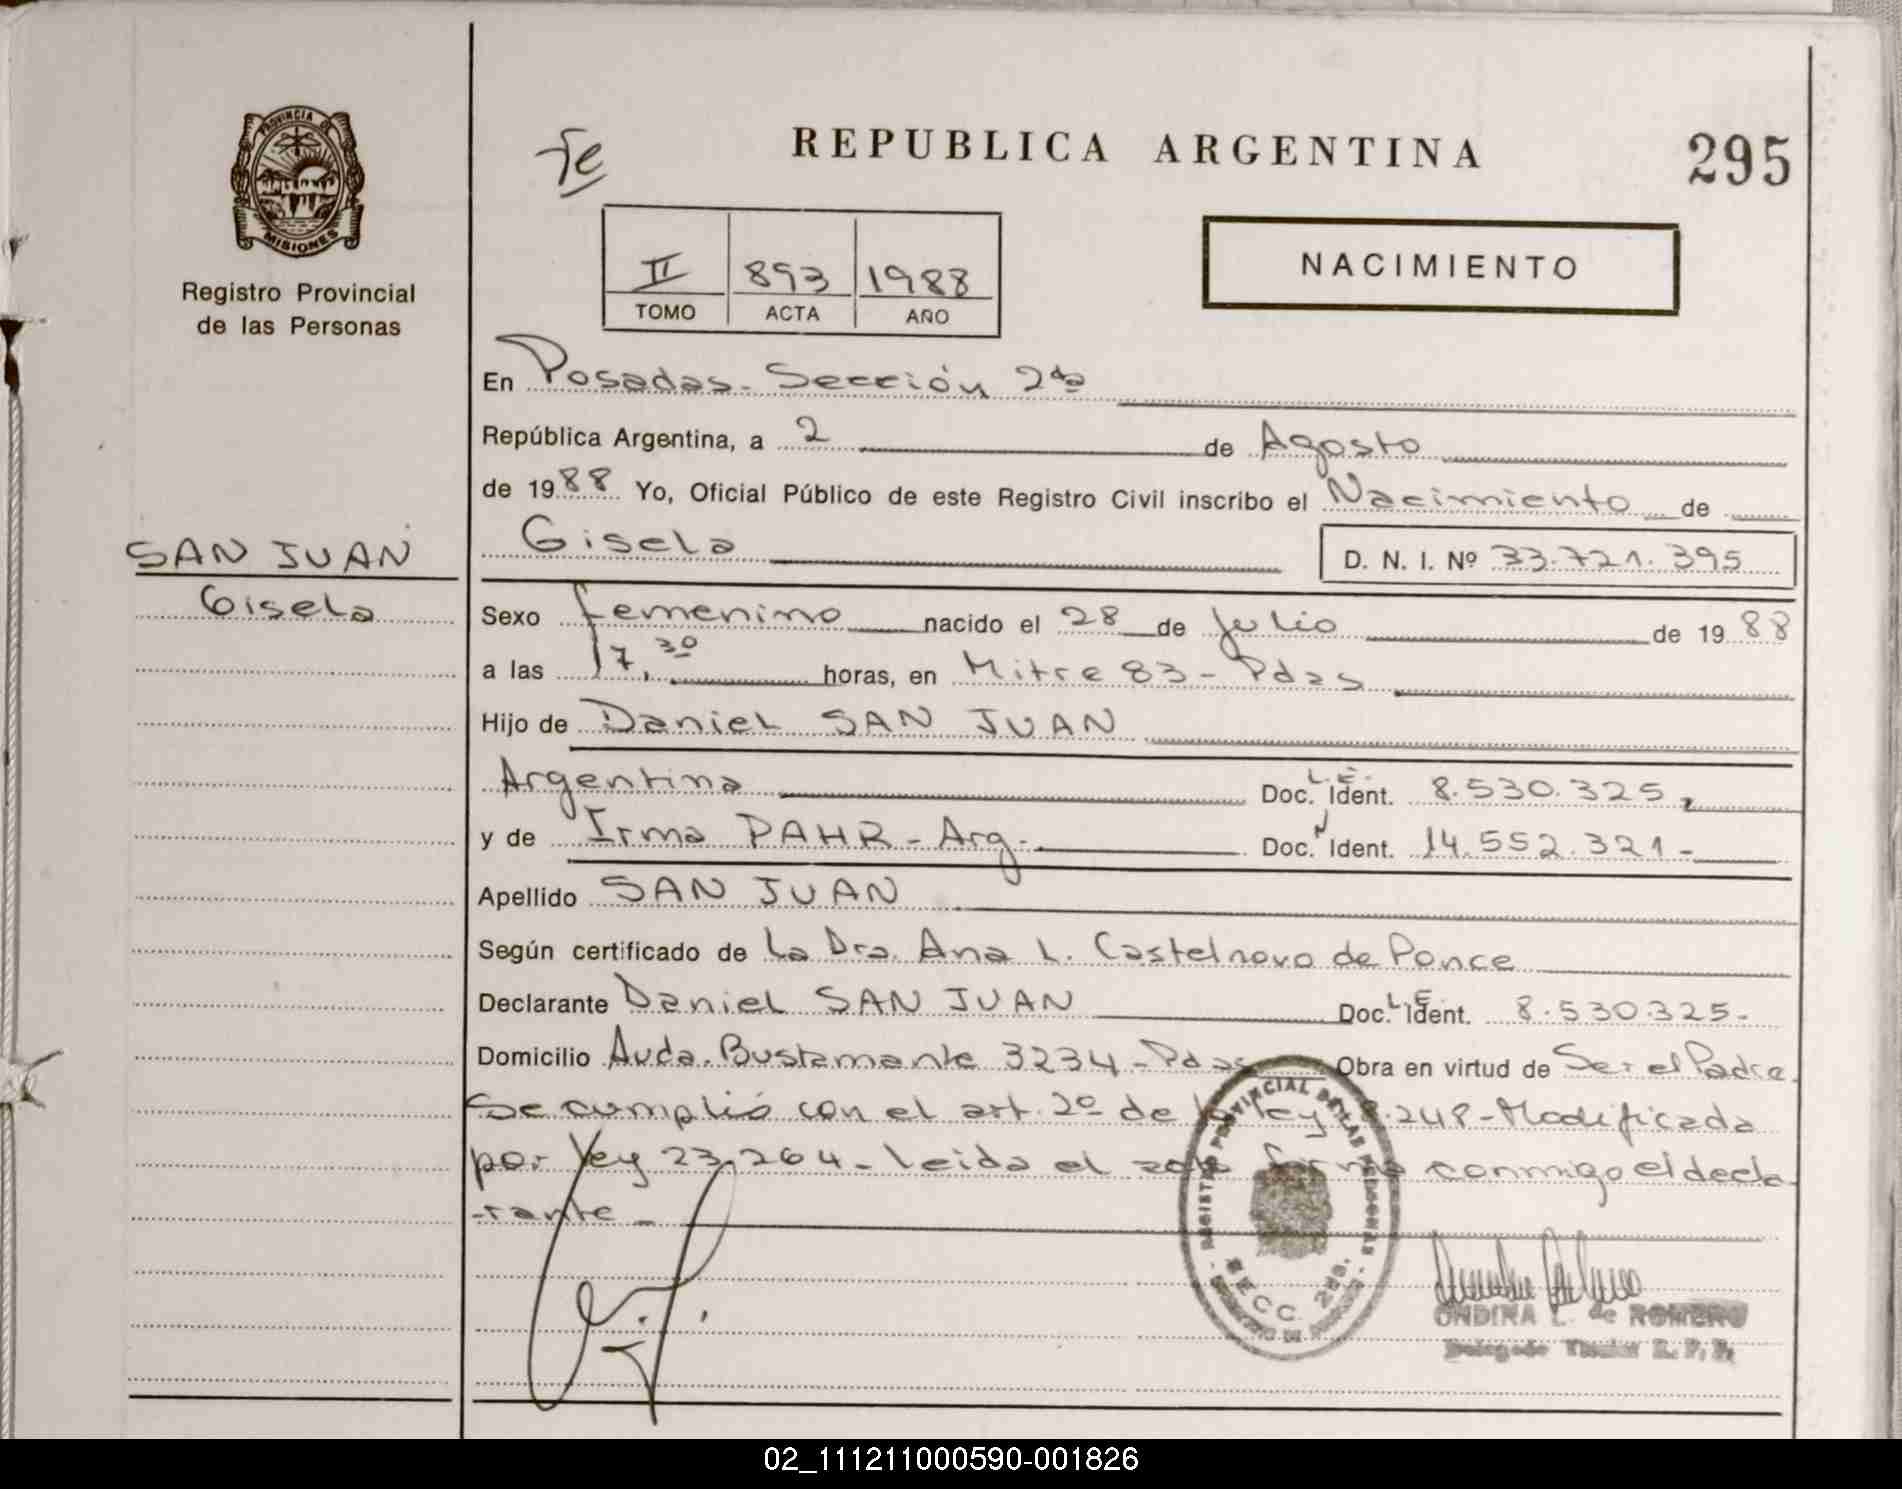 PROVINCIA DE
MISIONES
Registro Provincial
de las Personas
SAN JUAN
Gisela
Fe
REPUBLICA ARGENTINA
295
II 893 1988
TOMO ACTA AÑO
NACIMIENTO
En Posadas - Sección 2da
República Argentina, a 2 de Agosto
de 1988 Yo, Oficial Público de este Registro Civil inscribo el Nacimiento de
Gisela D. N. I. Nº 33.721.395
Sexo femenino nacido el 28 de julio de 1988
a las 17,30 horas, en Mitre 83 - Pdas
Hijo de Daniel SAN JUAN
Argentina Doc. L.E. Ident. 8.530.325,
y de Irma PAHR - Arg. Doc. N Ident. 14.552.321 -
Apellido SAN JUAN
Según certificado de La Dra. Ana L. Castelnovo de Ponce
Declarante Daniel SAN JUAN Doc. L.E. Ident. 8.530.325 -
Domicilio Avda. Bustamante 3234 - Pdas Obra en virtud de Ser el Padre.
Se cumplió con el art. 2º de la ley .248 - Modificada
por ley 23.264 - Leida el acta firma conmigo el decla
-rante -
REGISTRO PROVINCIAL DE LAS PERSONAS
SECC. 2da.
ONDINA L. de ROMERO
Delegado Titular R. P. P.
02_111211000590-001826